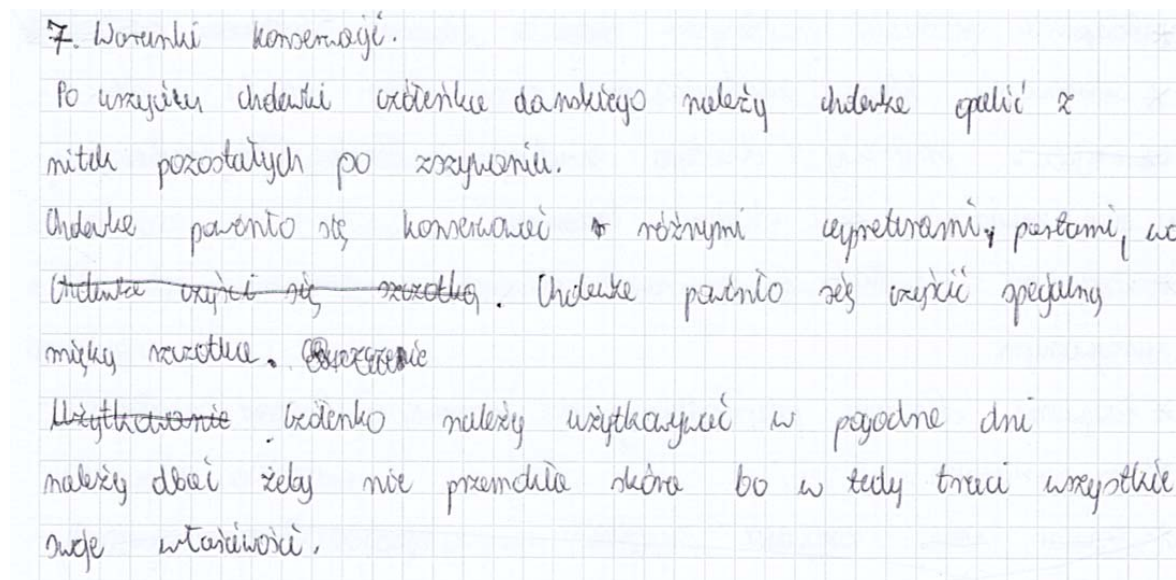 7. Warunki konserwacji.
Po uszyciu cholewki czółenka damskiego należy cholewkę opalić z
nitek pozostałych po zszywaniu.
Cholewkę powinto się konserwować różnymi wypreturami, pastami, wo
Cholewkę czyści się szczotką. Cholewkę powinto się czyścić specjalną
mięką szczotka.
Użytkowanie Czółenko należy użytkowywać w pogodne dni
należy dbać żeby nie przemokła skóra bo w tedy traci wszystkie
swoje właściwości.